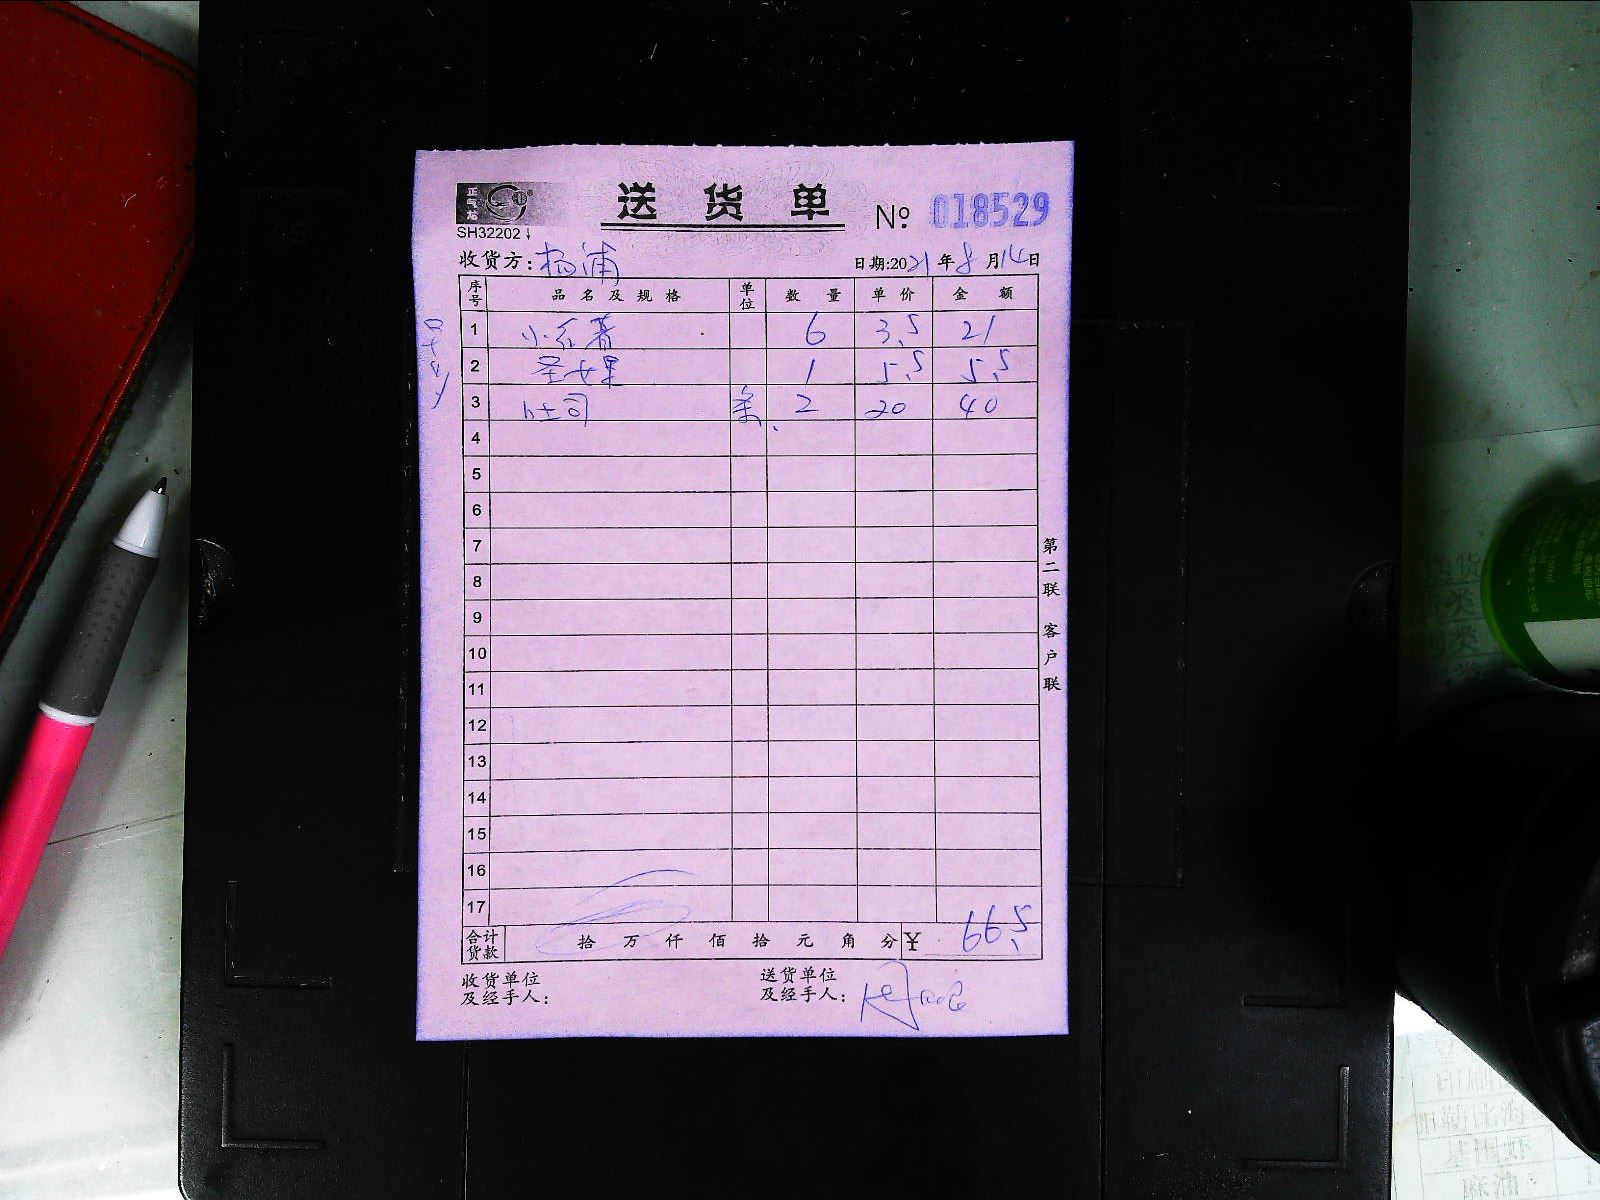 正气龙
SH32202
送 货 单 № 018529
收货方: 杨浦 日期:2021年8月14日
序号 品名及规格 单位 数量 单价 金额
1 小红薯 6 3.5 21
2 圣女果 1 5.5 5.5
3 吐司 条 2 20 40
4
5
6
7
8
9
10
11
12
13
14
15
16
17
合计货款 拾 万 仟 佰 拾 元 角 分 ¥ 66.5
收货单位及经手人:
送货单位及经手人:
第二联 客户联
基围虾
麻油